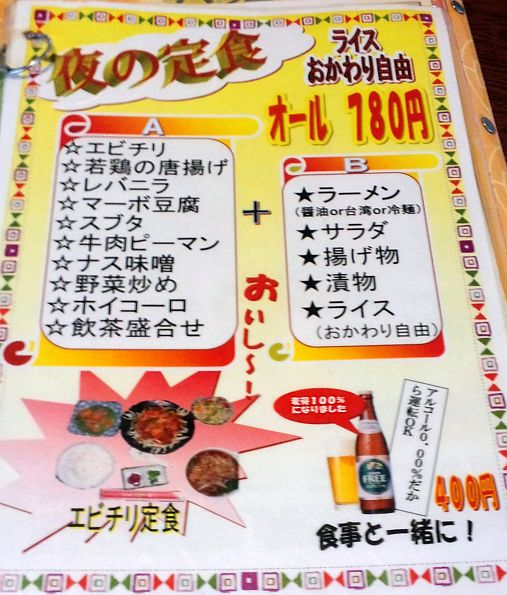 夜の定食
ライス
おかわり自由
オール 780円
A
☆エビチリ
☆若鶏の唐揚げ
☆レバニラ
☆マーボ豆腐
☆スブタ
☆牛肉ピーマン
☆ナス味噌
☆野菜炒め
☆ホイコーロ
☆飲茶盛合せ
+
B
★ラーメン
(醤油or台湾or冷麺)
★サラダ
★揚げ物
★漬物
★ライス
(おかわり自由)
おいし～!
エビチリ定食
麦芽100%
になりました
FREE
アルコール0.00%だか
ら運転OK
400円
食事と一緒に!